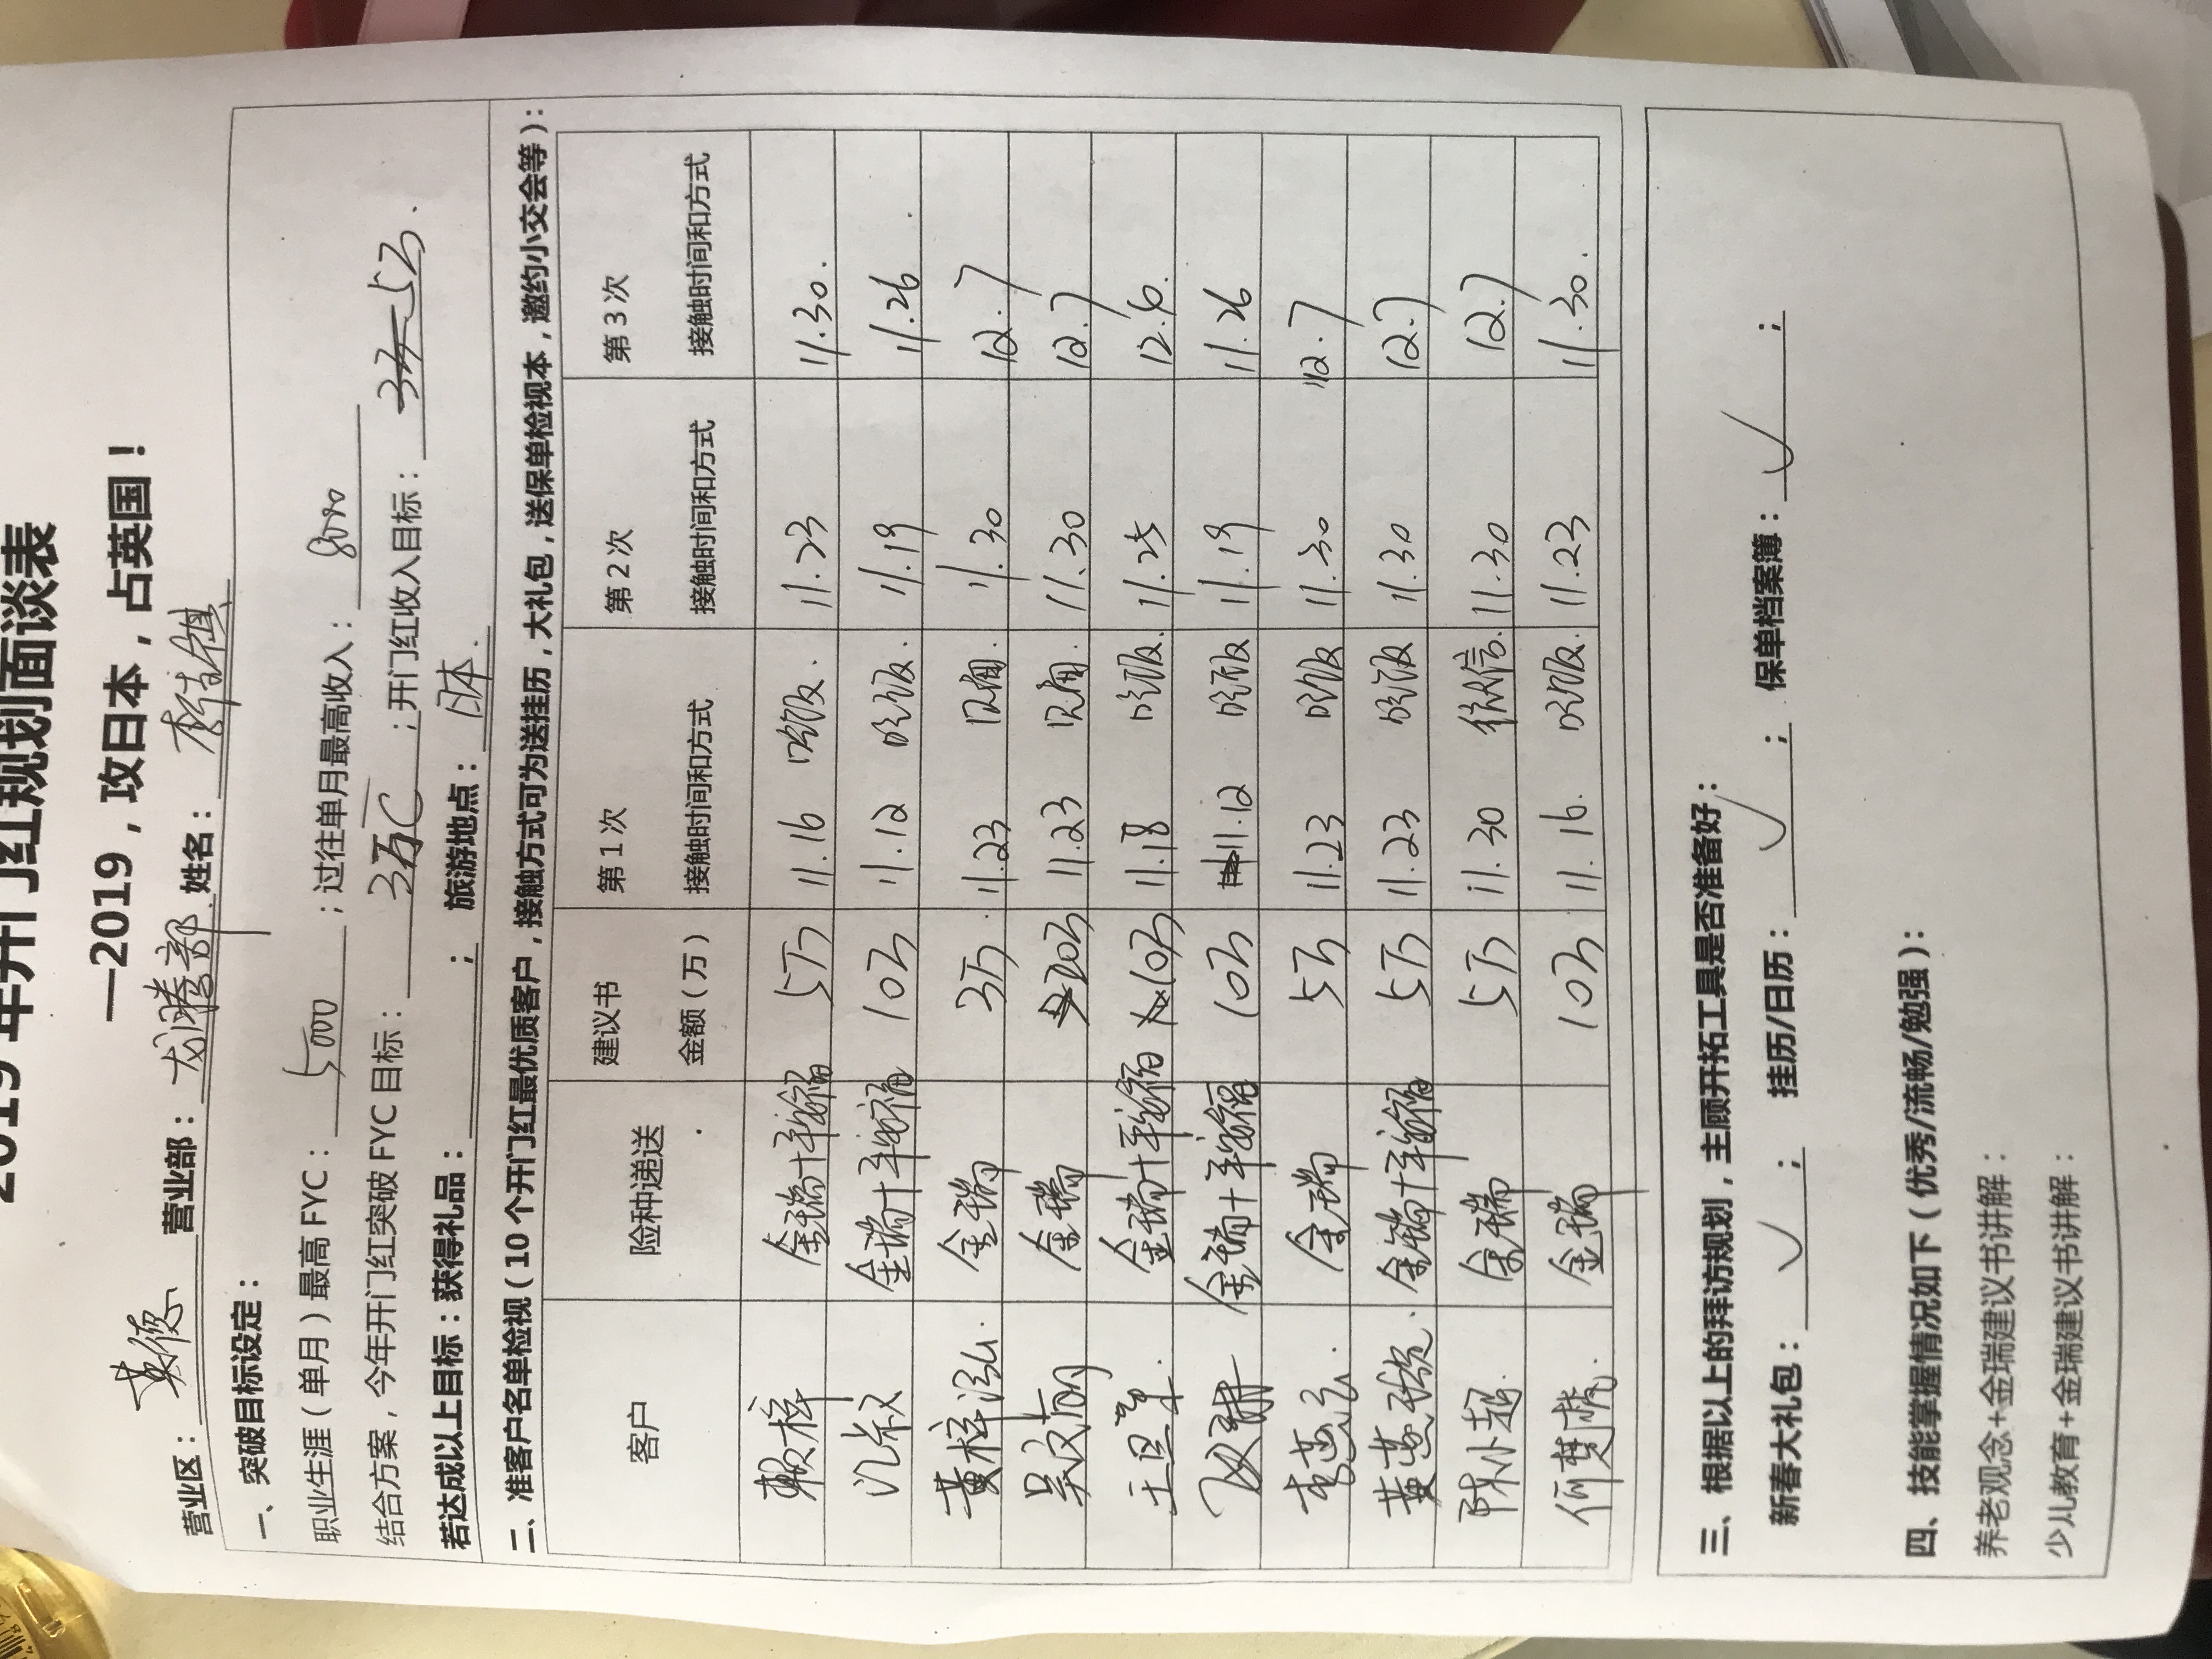 2019年开门红规划面谈表
—2019，攻日本，占英国！
营业区：英德 营业部：龙腾部 姓名：
一、突破目标设定：
职业生涯（单月）最高FYC：5000；过往单月最高收入：8000
结合方案，今年开门红突破FYC目标：3万C；开门红收入目标：5万.
若达成以上目标：获得礼品：；旅游地点：日本.
二、准客户名单检视（10个开门红最优质客户，接触方式可为送挂历，大礼包，送保单检视本，邀约小交会等）：
客户 险种递送 建议书金额（万） 第1次接触时间和方式 第2次接触时间和方式 第3次接触时间和方式
赖梓 金瑞+平安福 5万 11.16 吃饭. 11.23 11.30.
沉叔 金瑞+平安福 10万 11.12 吃饭. 11.19 11.26
黄梓泓. 金瑞 3万. 11.23 见面. 11.30 12.7
吴文萌 金瑞 20万 11.23 见面. 11.30 12.7
王旦苹. 金瑞+平安福 10万 11.18 吃饭. 11.25 12.6.
金瑞+平安福 10万 11.12 吃饭. 11.19 11.26
李燕云. 金瑞 5万 11.23 吃饭 11.30 12.7
黄燕璇. 金瑞+平安福 5万 11.23 吃饭 11.30 12.7
陈小超. 金瑞 5万 11.30 微信. 11.30 12.7
何楚. 金瑞 10万 11.16. 吃饭. 11.23 11.30.
三、根据以上的拜访规划，主顾开拓工具是否准备好：
新春大礼包：✓； 挂历/日历：✓； 保单档案簿：✓；
四、技能掌握情况如下（优秀/流畅/勉强）：
养老观念+金瑞建议书讲解：
少儿教育+金瑞建议书讲解：